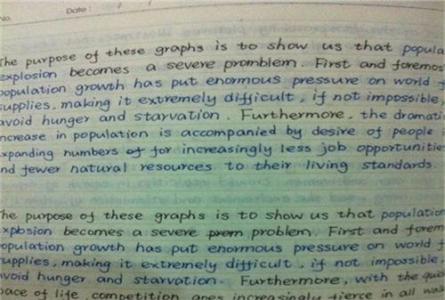 No. Date:
The purpose of these graphs is to show us that popula
explosion becomes a severe promblem. First and foremos
population growth has put enormous pressure on world f
supplies, making it extremely difficult, if not impossible
avoid hunger and starvation. Furthermore, the dramati
increase in population is accompanied by desire of people
expanding numbers of for increasingly less job opportunitie
and fewer natural resources to their living standards.
The purpose of these graphs is to show us that population
explosion becomes a severe prom problem. First and forem
population growth has put enormous pressure on world f
supplies, making it extremely difficult, if not impossible
avoid hunger and starvation. Furthermore, with the qui
pace of life, competition goes increasingly fierce in all wal